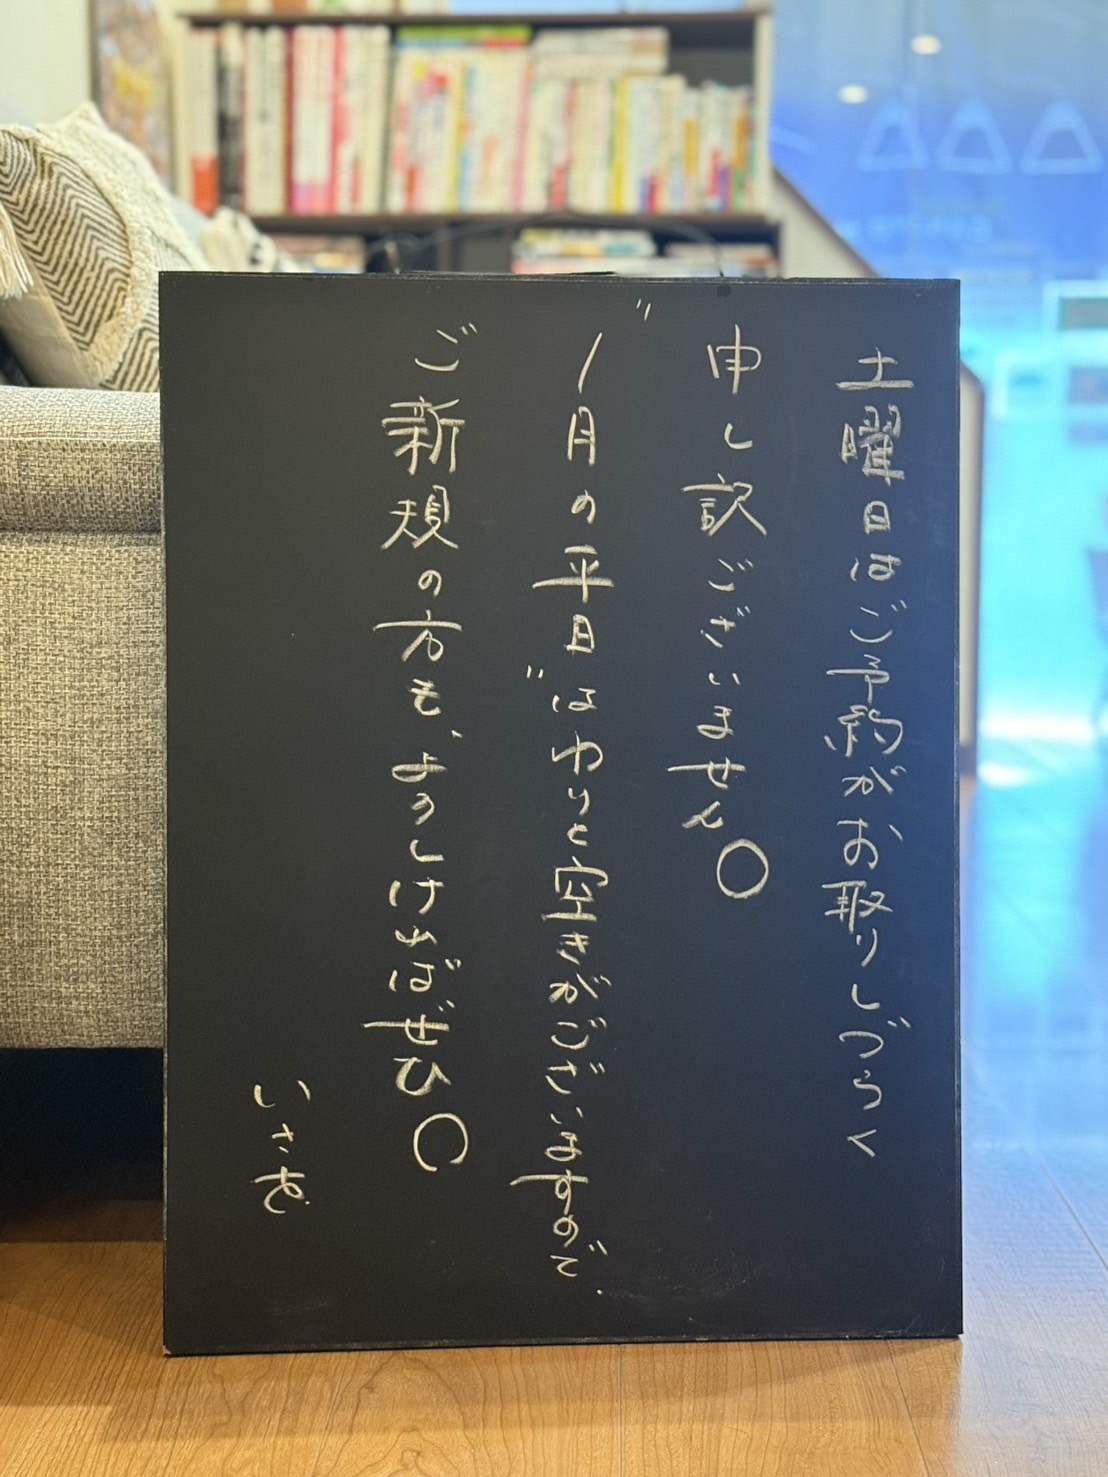 土曜日はご予約がお取りしづらく
申し訳ございません○
"1月の平日"はわりと空きがございますので、
ご新規の方も、よろしければぜひ○
いさを